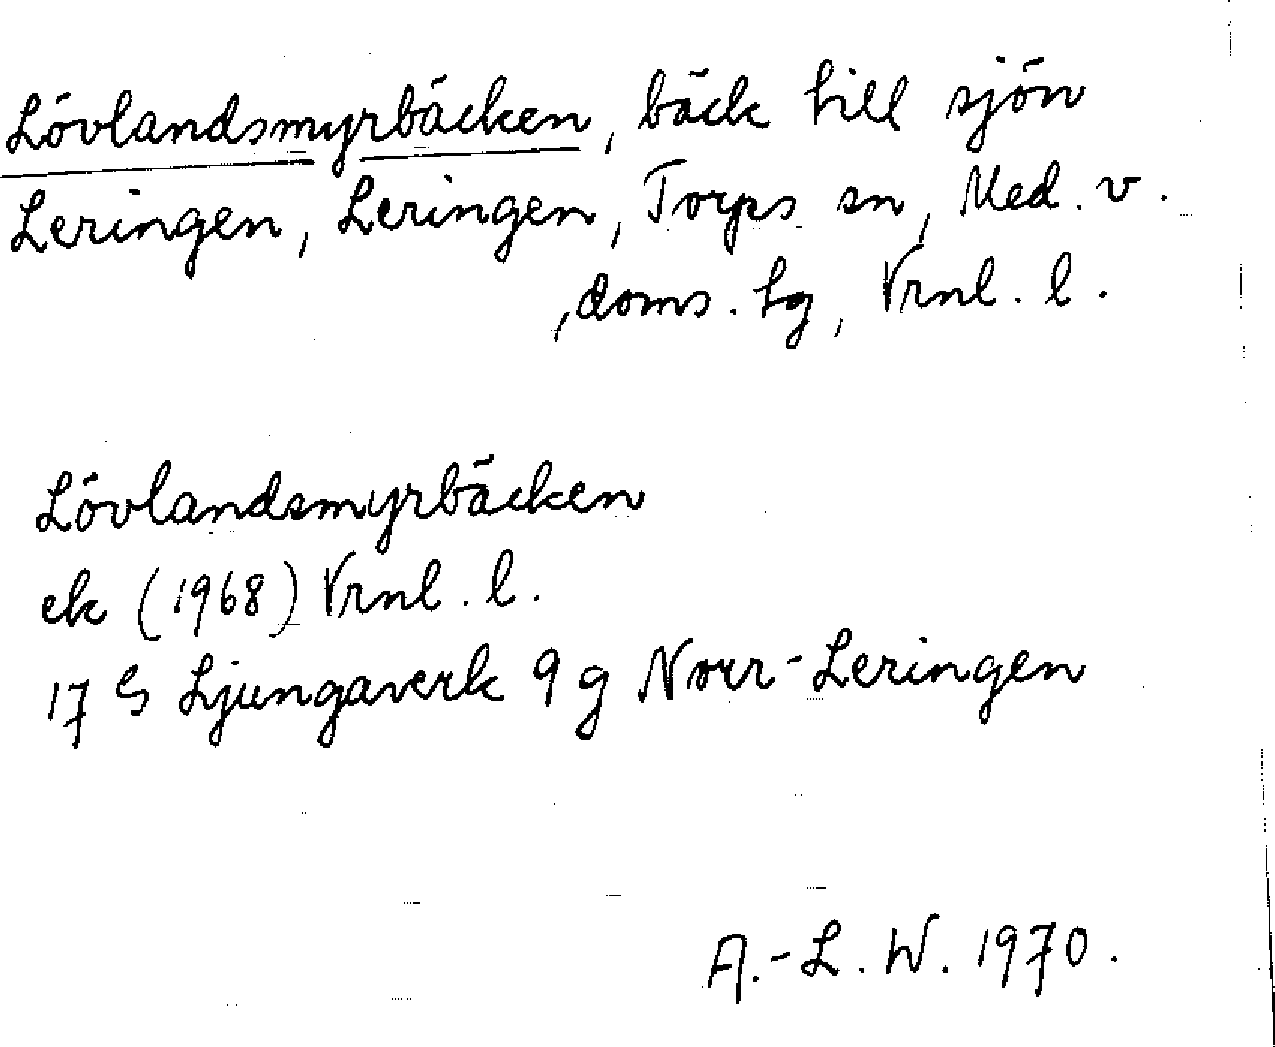 Lövlandsmyrbäcken, bäck till sjön
Leringen, Leringen, Torps sn, Med. v.
, doms. hg, Vrnl. l.
Lövlandsmyrbäcken
ek (1968) Vrnl. l.
17 G Ljungaverk 9 g Norr-Leringen
A.-L. W. 1970.